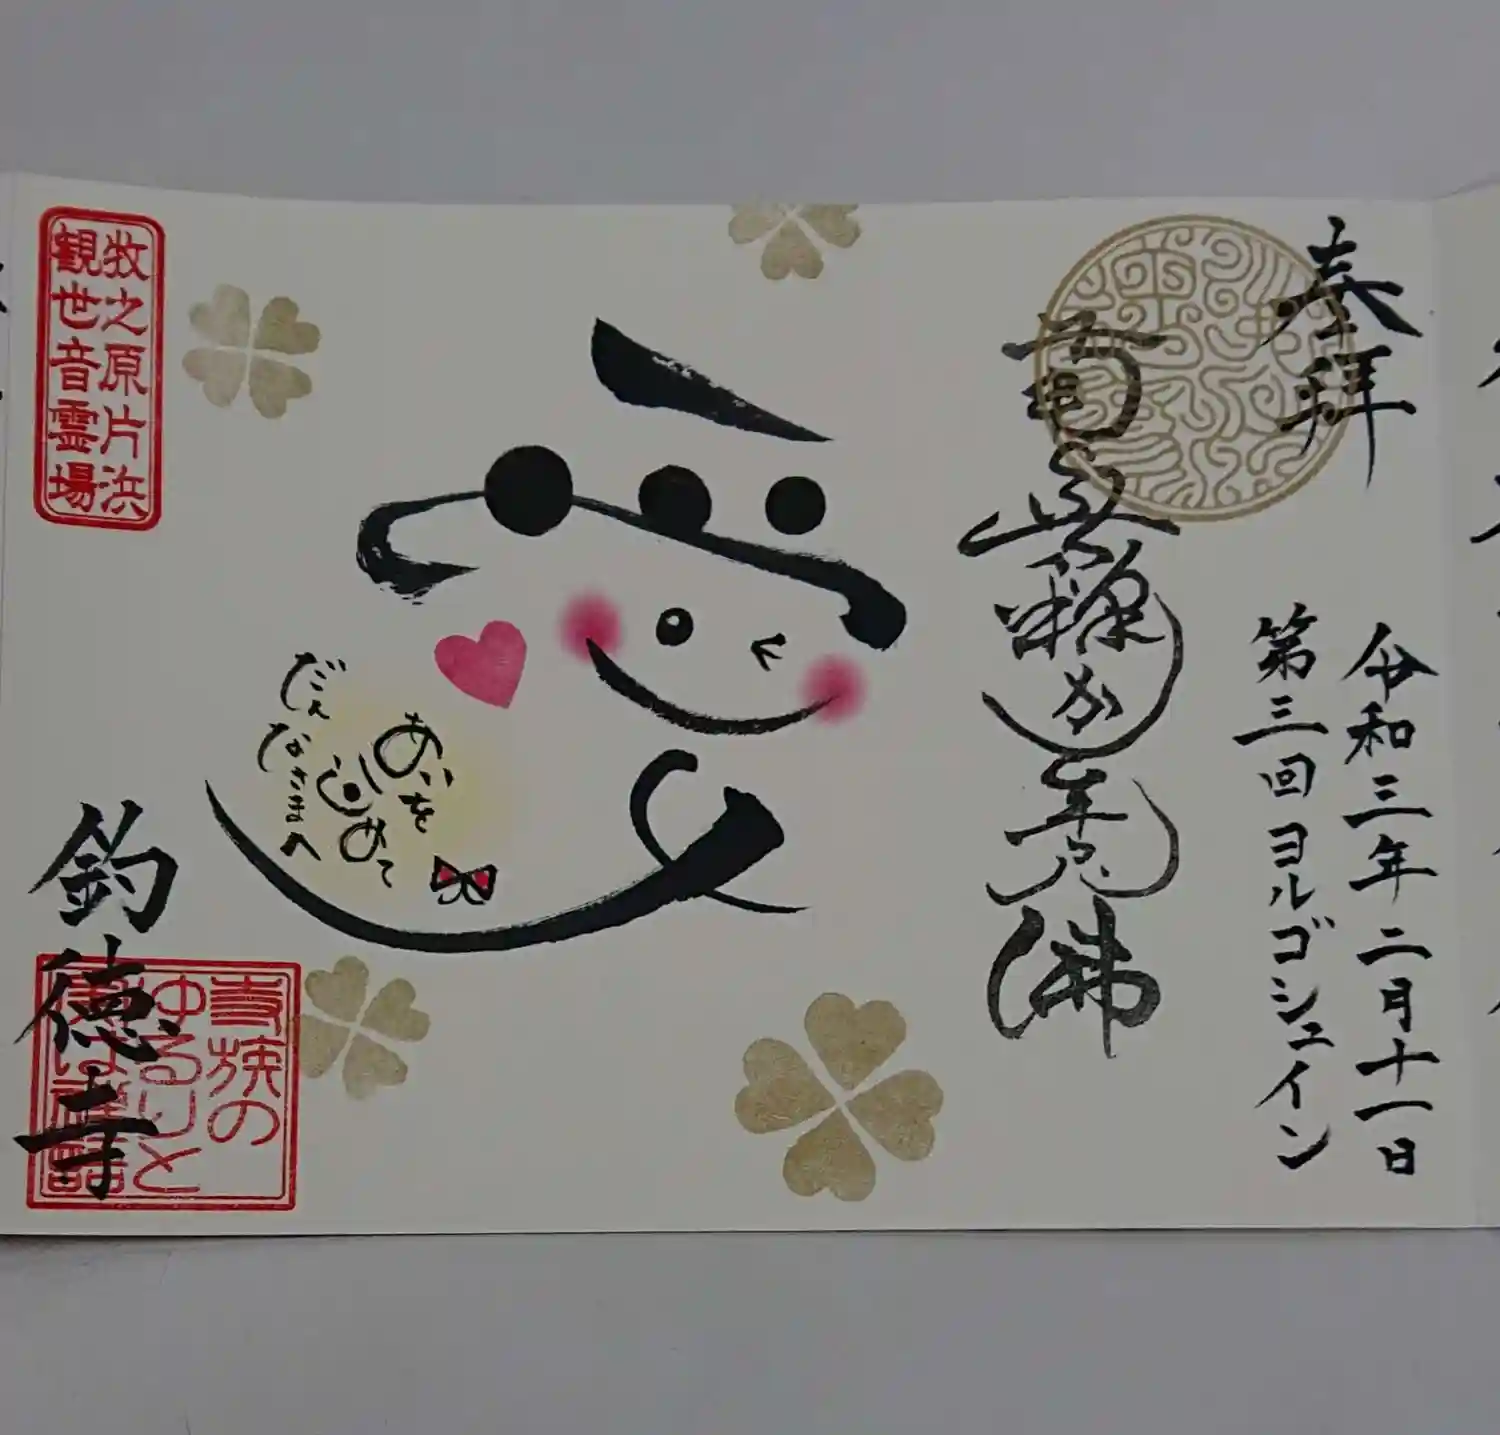 奉拝
令和三年二月十一日
第三回ヨルゴシュイン
愛
あいを
こめて
だんなさまへ
牧之原片浜
観世音霊場
釣徳寺
寺族の
ゆるりと